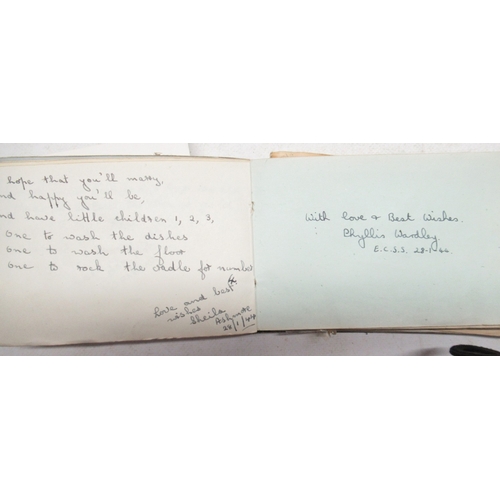 hope that you'll marry,
nd happy you'll be,
nd have little children 1, 2, 3,
one to wash the dishes
one to wash the floor
one to rock the cradle for number
4.
Love and best
wishes
Sheila
28/1/44
With love & Best Wishes.
Phyllis Wardley.
E.C.S.S. 28-1-44.